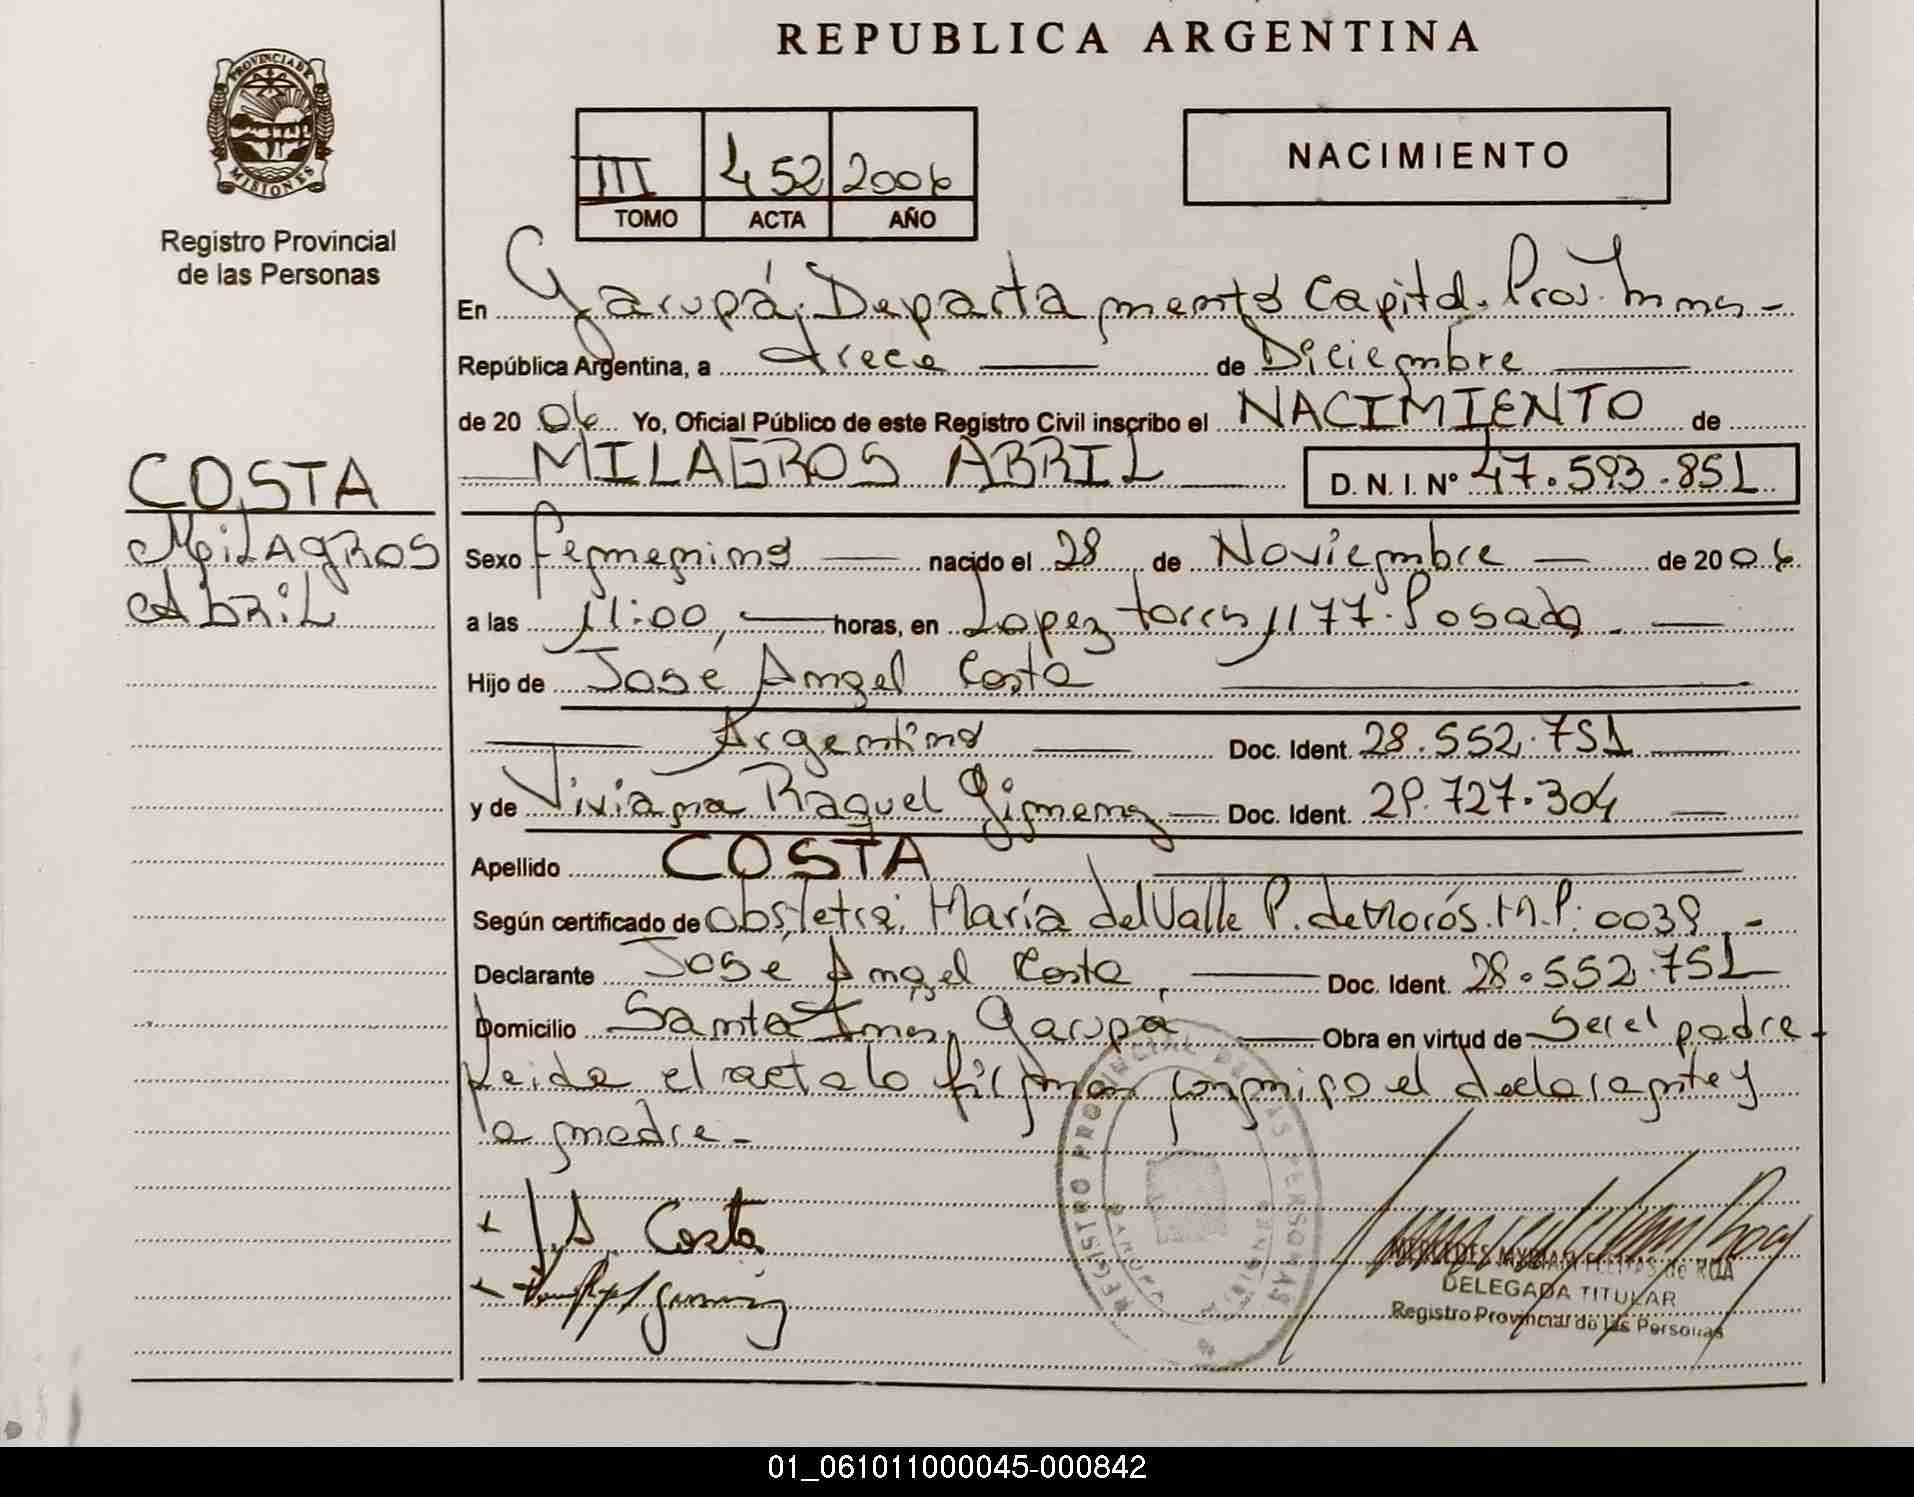 REPUBLICA ARGENTINA
PROVINCIA DE
MISIONES
Registro Provincial
de las Personas
III 452 2006
TOMO ACTA AÑO
NACIMIENTO
En Garupá. Departamento Capital. Prov. Mnes -
República Argentina, a trece de Diciembre
de 2006 Yo, Oficial Público de este Registro Civil inscribo el NACIMIENTO de
MILAGROS ABRIL D. N. I. Nº 47.593.851
COSTA
MiLAgROS
AbRiL
Sexo femenino nacido el 28 de Noviembre de 2006
a las 11:00, horas, en Lopez torres 1177. Posadas.
Hijo de José Angel Costa
Argentino Doc. Ident. 28.552.751
y de Viviana Raquel Gimenez Doc. Ident. 29.727.304
Apellido COSTA
Según certificado de obstetra: María del Valle P. de Morós. M.P: 0039 -
Declarante José Angel Costa, Doc. Ident. 28.552.751
Domicilio Santa Ines, Garupá Obra en virtud de Ser el padre -
Leida el acta lo firman conmigo el declarante y
la madre -
+ J.A. Costa
REGISTRO PROVINCIAL DE LAS PERSONAS
MISIONES
MERCEDES MYRIAM FLEITAS de ROA
DELEGADA TITULAR
Registro Provincial de las Personas
01_061011000045-000842